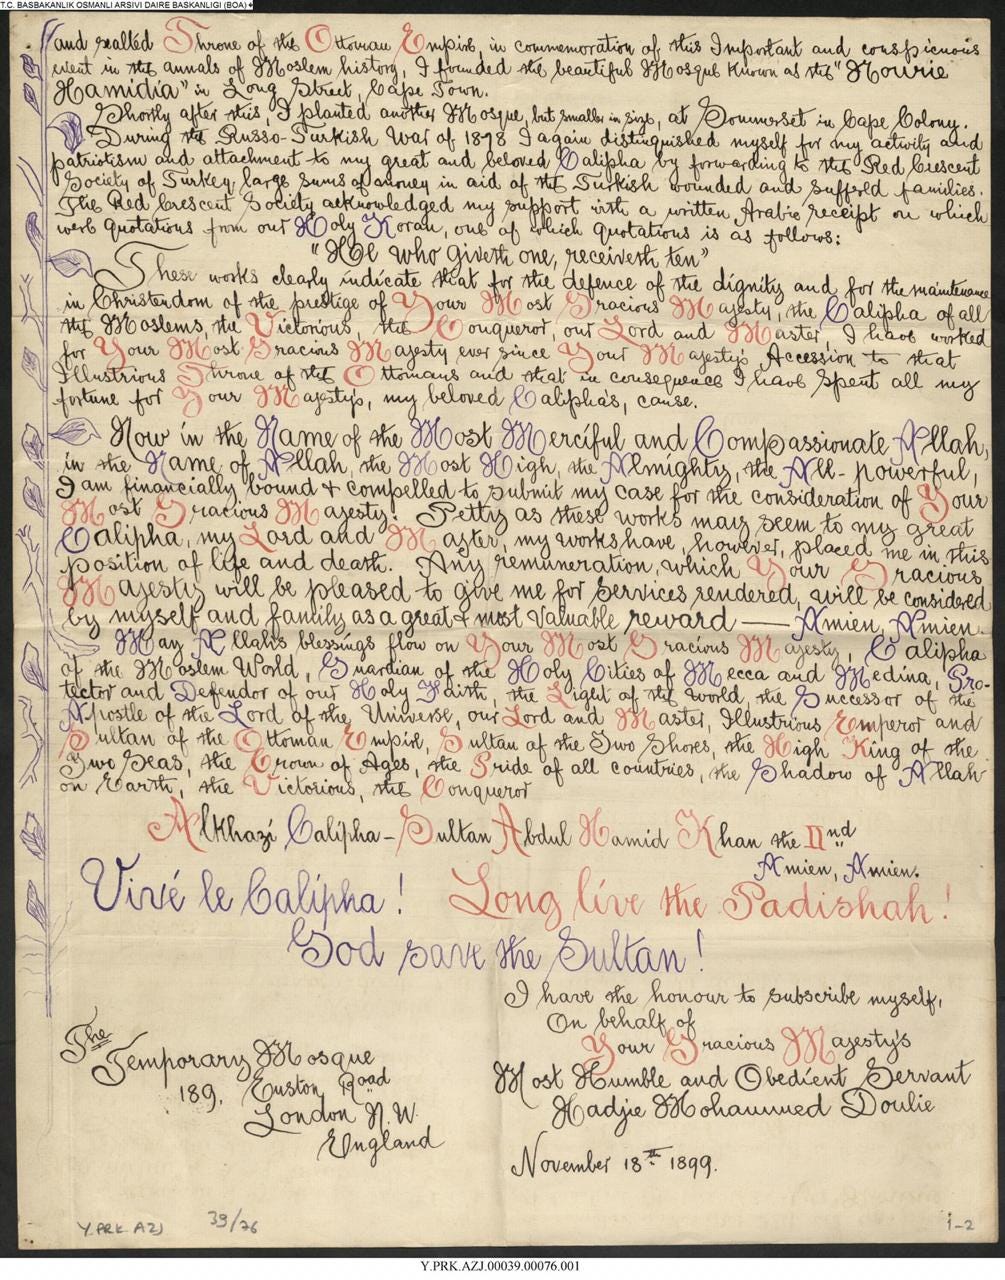 T.C. BASBAKANLIK OSMANLI ARSIVI DAIRE BASKANLIGI (BOA)
and exalted Throne of the Ottoman Empire, in commemoration of this Important and conspicuous
event in the annals of Moslem history, I founded the beautiful Mosque known as the "Nourie
Hamidia" in Long Street, Cape Town.
Shortly after this, I planted another Mosque, but smaller in size, at Sommerset in Cape Colony.
During the Russo-Turkish War of 1878 I again distinguished myself for my activity and
patriotism and attachment to my great and beloved Calipha by forwarding to the Red Crescent
Society of Turkey, large sums of money in aid of the Turkish wounded and suffered families.
The Red Crescent Society acknowledged my support with a written Arabic receipt on which
were quotations from our Holy Koran, one of which quotations is as follows:
"He who giveth one, receiveth ten"
These works clearly indicate that for the defence of the dignity and for the maintenance
in Christendom of the prestige of Your Most Gracious Majesty, the Calipha of all
the Moslems, the Victorious, the Conqueror, our Lord and Master, I have worked
for Your Most Gracious Majesty ever since Your Majesty's Accession to that
Illustrious Throne of the Ottomans and that in consequence I have spent all my
fortune for Your Majesty's, my beloved Calipha's, cause.
Now in the Name of the Most Merciful and Compassionate Allah,
in the Name of Allah, the Most High, the Almighty, the All-powerful,
I am financially bound & compelled to submit my case for the consideration of Your
Most Gracious Majesty. Petty as these works may seem to my great
Calipha, my Lord and Master, my works have, however, placed me in this
position of life and death. Any remuneration, which Your Gracious
Majesty will be pleased to give me for services rendered, will be considered
by myself and family as a great & most valuable reward — Amien, Amien.
May Allah's blessings flow on Your Most Gracious Majesty, Calipha
of the Moslem World, Guardian of the Holy Cities of Mecca and Medina, Pro-
tector and Defendor of our Holy Faith, the Light of the world, the Successor of the
Apostle of the Lord of the Universe, our Lord and Master, Illustrious Emperor and
Sultan of the Ottoman Empire, Sultan of the Two Shores, the High King of the
Two Seas, the Crown of Ages, the Pride of all countries, the Shadow of Allah
on Earth, the Victorious, the Conqueror
Alkhazi Calipha-Sultan Abdul Hamid Khan the IInd
Amien, Amien.
Vivé le Calipha! Long live the Padishah!
God save the Sultan!
I have the honour to subscribe myself,
On behalf of
Your Gracious Majesty's
Most Humble and Obedient Servant
Hadjie Mohammed Doulie
November 18th. 1899.
The
Temporary Mosque
189, Euston Road
London N.W.
England
Y.PRK.AZJ 39/76 1-2
Y.PRK.AZJ.00039.00076.001